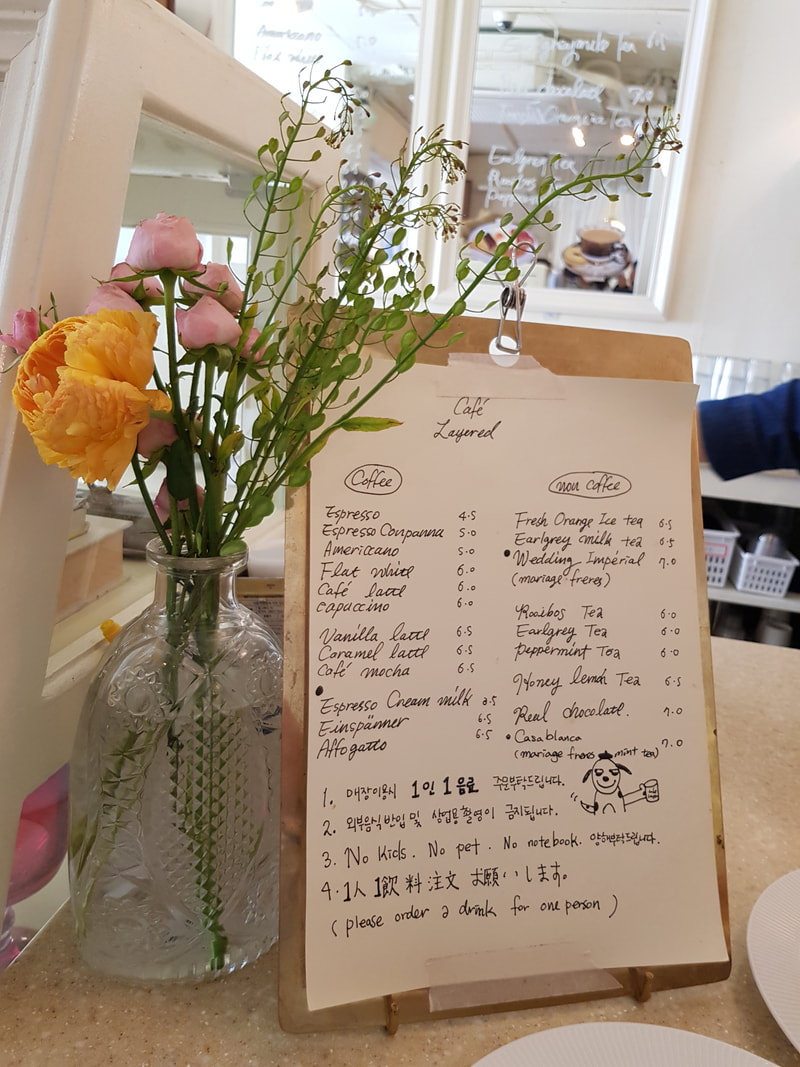 Earlgreymilk Tea 6.5
Earlgrey Tea
Café
Layered
Coffee
Espresso 4.5
Espresso Conpanna 5.0
Americcano 5.0
Flat white 6.0
Café latte 6.0
capuccino 6.0
Vanilla latte 6.5
Caramel latte 6.5
Café mocha 6.5
Espresso Cream milk
Einspänner 6.5
Affogatto 6.5
non coffee
Fresh Orange Ice tea 6.5
Earlgrey milk tea 6.5
• Wedding Impérial 7.0
(mariage freres)
Rooibos Tea 6.0
Earlgrey Tea 6.0
Peppermint Tea 6.0
Honey lemon Tea 6.5
Real chocolate. 7.0
• Casablanca
(mariage freres mint tea) 7.0
1. 매장이용시 1인 1음료 주문부탁드립니다.
2. 외부음식 반입 및 상업용 촬영이 금지됩니다.
3. No kids. No pet. No notebook. 양해부탁드립니다.
4. 1人 1飲料 注文 お願いします。
( please order a drink for one person )